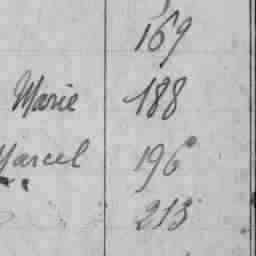 169
Marie 188
Marcel 196
213